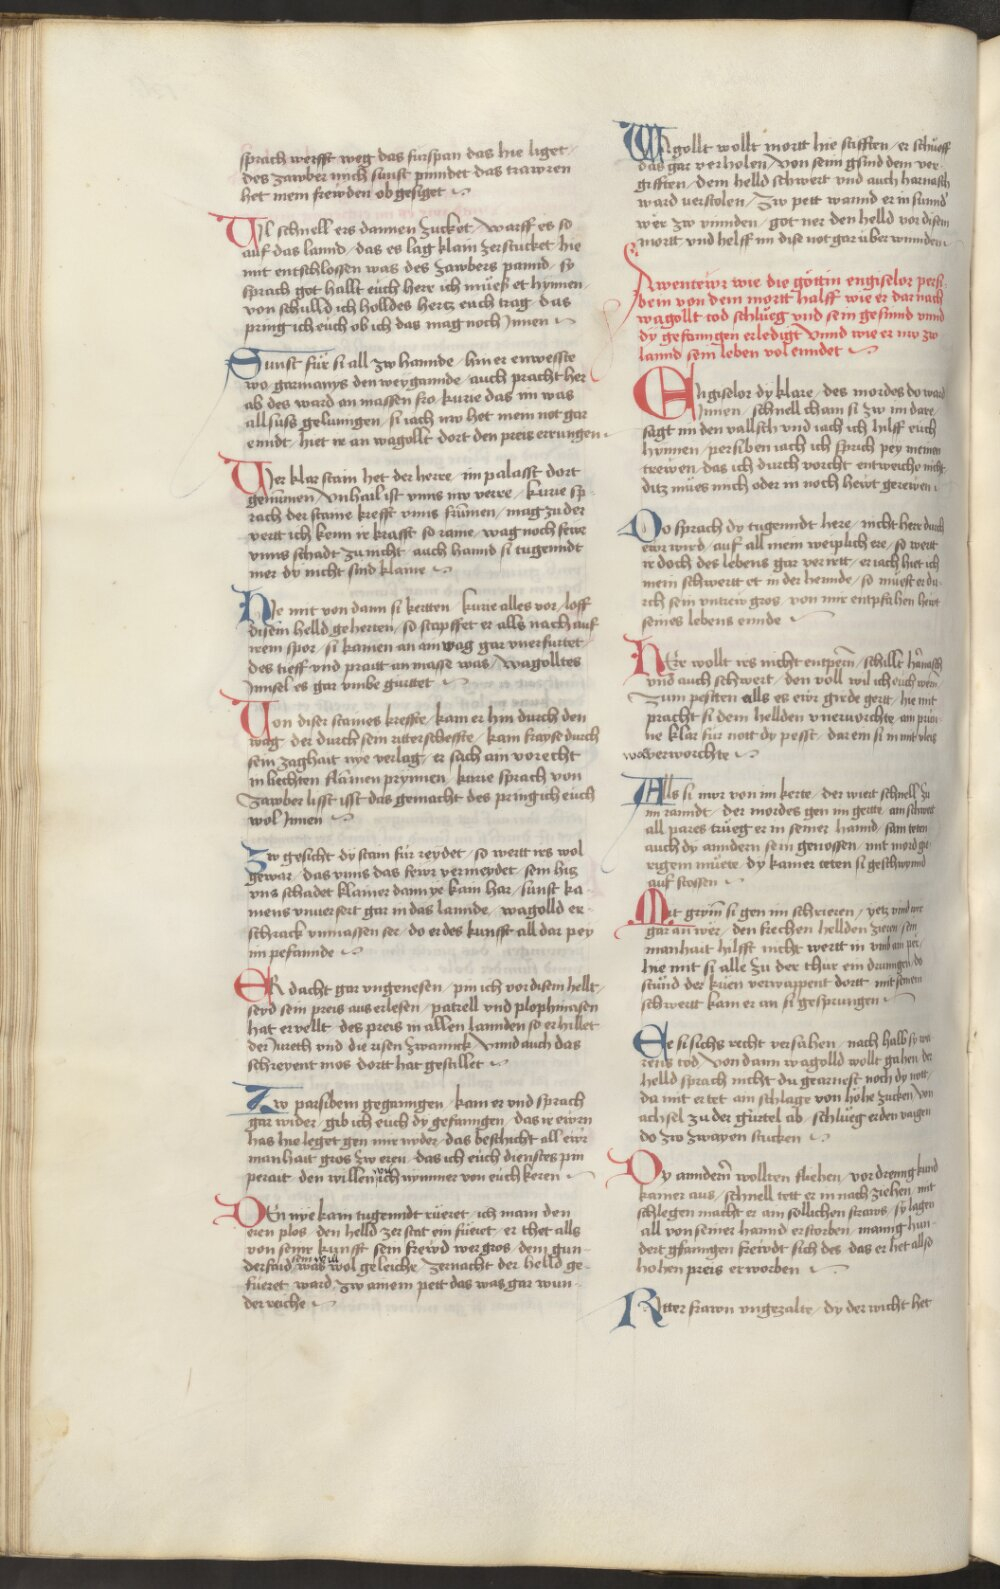 sprach werfft weg das fürspan das hie liget /
des zawber mich sunst pindet das trawren
het mein frewden obgesiget
Vil schnell ers dannen zucket / warff es so
auf das lannd / das es lag klain zerstucket / hie
mit entschlossen was des zawbers pannd / sy
sprach got hallt euch here ich müeß et hynnen /
von schulld ich holldes hertz euch trag / das
pring ich euch ob ich das mag noch Innen
Sunst für si all zw hannde / hin er enwesste
wo garmanys den weygannde / auch pracht her
ab des ward an massen fro / kurie das im was
all süss gelungen / si iach nw het mein not gar
enndt / het ir an wagollt dort den preis errungen
Der klar stain het der herre / im palasst dort
genumen / Vnhail ist vnns nw verre / kurie sp-
rach der staine krefft vnns frumen / mag zu der
vertt ich kenn ir krafft so raine / wag noch fewr
vnns schadt zu nicht / auch hannd si tugenndt
mer dy nicht sind klaine
Hie mit von dann si kertten / kurie alles vor / loff
disem helld geherten / so stapffet er alls nach auf
irem spor / si kamen an ain wag gar vnerfurtet /
des tieff vnd praitt an masse was / wagolltes
Innsel es gar vmbe gurttet
Von diser staines kreffte / kam er hin durch den
wag / der durch sein ritterscheffte / kain frayse durch
sein zaghait nye verlag / er sach ain vorecht
in liechten flamen prynnen / kurie sprach von
zawber lisst ist das gemacht des pring ich euch
wol Innen
Zw gesicht dy stain für reydet / so wertt irs wol
gewar / das vnns das fewr vermeydet / sein hitz
vns schadet klainer dann ye kain har / sunst ka-
mens vnuersert gar in das lannde / wagolld er-
schrack vnmassen ser / do er des kunfft all dar pey
im pefannde
Er dacht gar vngenesen / pin ich vor disem hellt /
seyd sein preis aus erlesen / patrell vnd plophinasen
hat ervellt / des preis in allen lannden so erhillet
der Iureth vnd die risen zwainck / Vnnd auch das
schreyent mos dortt hat gestillet
Zw parsibein geganngen / kam er vnd sprach
gar wider / gib ich euch dy gefanngen / das ir ewrn
has hie leget gen mir nyder / das beschicht all ewr
manhait gros zw eren / das ich euch dienstes pin
perait den willen von ich nymmer von euch keren
Den nye kain tugenndt rüeret / ich main den
eren plos / den helld zerstat ein füeret / er thet alls
von seine kunfft sein frewd wer gros / dem gun-
derfaid sein vell was wol geleiche / zernacht der helld ge-
füeret ward / zw ainem pett das was gar wun-
der reiche
Wagollt wollt mortt hie stifften / er schueff
das gar verholen / Von seim gsind dem ver-
gifften / dem helld schwert vnd auch harnasch
ward verstolen / Zw pett wannd er in sunnd
wer zw vinnden / got ner den helld vor disem
mortt vnd helff im dise not gar überwinnden
Awentewr wie die göttin engiselor persi-
bein von dem mortt halff wie er darnach
wagollt tod schlueg vnd sein gesinnd vnnd
dy gefanngen erledigt Vnnd wie er nw zw
lannd sein leben volenndet
Engiselor dy klare / des mordes do ward
Innen / schnell cham si zw im dare /
sagt im den vallsch vnd iach ich hilff euch
hynnen / persiben iach ich sprich pey meinen
trewen / das ich durch vorcht entweiche nicht /
ditz mües mich oder in noch hewt gerewen
Do sprach dy tugenndt here / nicht here durch
ewr wird / auf all mein weiplich ere / so wertt
ir doch des lebens gar verirtt / er iach hiet ich
mein schwertt et in der hennde / so müest er du-
rch sein vntrew gros / von mir entpfahen hewt
seines lebens ennde
Here wollt irs nicht entpern / schillt harnasch
vnd auch schwert / den voll wil ich euch wern
zum pesten alls es ewr girde gertt / hie mit
pracht si dem hellden vneruorchte / am prün-
ne klar für nott dy pesst / dar ein si in mit vleis
verworchte
Alls si nwr von im kerte / der wiert schnell zu
im ranndt / der mordes gen im gertte / ain schwertt
all pares trueg er in seiner hannd / sam teten
auch dy anndern sein genossen / mit mord gi-
rigem müete / dy kamer teten si geschwynnd
auf stossen
Mit grim si gen im schrieren / yetz vnd wer
gar an wer / den frechen hellden zieren / sein
manhait hilfft nicht wertt in vmb ain per /
hie mit si alle zu der thür ein drunngen / do
stund der küen verwappent dortt mit seinem
schwertt kam er an si gesprungen
Ee si sichs recht versahen / nach halb sy wa-
rens tod / Von dann wagolld wollt gahen der
helld sprach nicht du gearnest noch dy nott /
da mit er tet am schlage von höhe zucken / Von
achsel zu der gürtel ab / schlueg er den vaigen
do zw zwayen stucken
Dy anndern wollten fliehen / vor drenng kund
kainer aus / schnell tett er in nach ziehen / mit
schlegen macht er am sollichen straws / sy lagen
all von seiner hannd erstorben / manig hun-
dert gfanngen frewdt sich des / das er het allso
hohen preis erworben
Ritter frawn vngezalte / dy der wicht het